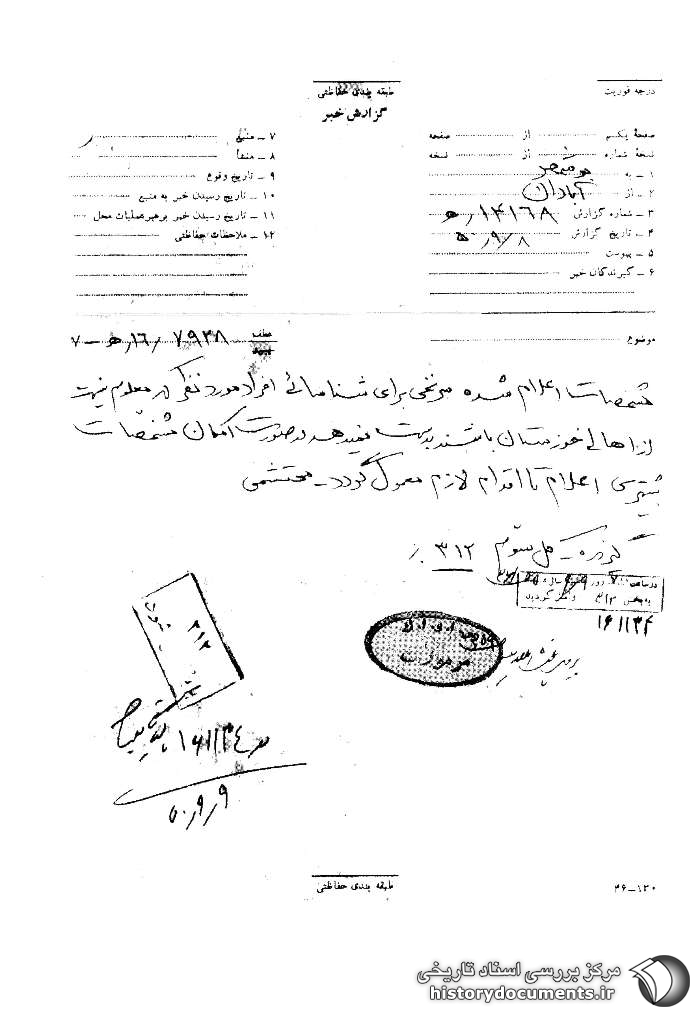 درجه فوریت
طبقه بندی حفاظتی
گزارش خبر
صفحهٔ یکسم از صفحه
نسخهٔ شماره از نسخه
۱ - به
۲ - از آبادان
۳ - شماره گزارش ۱۴۱۶۸ ر ه
۴ - تاریخ گزارش ۵۰٫۹٫۸
۵ - پیوست
۶ - گیرندگان خبر
۷ - منبع
۸ - منشأ
۹ - تاریخ وقوع
۱۰ - تاریخ رسیدن خبر به منبع
۱۱ - تاریخ رسیدن خبر برهبرعملیات محل
۱۲ - ملاحظات حفاظتی
موضوع
عطف ۷۹۳۸ / ۱۶ ر ه - ۷
مشخصات اعلام شده برای شناسائی افراد مورد نظر که معلوم نیست
از اهالی خوزستان باشند در صورت امکان مشخصات
بیشتری اعلام تا اقدام لازم معمول گردد - محتشمی
گیرنده - کل سوم ۳۱۲
به بخش ۳۱۲ واگذار گردید
۱۶۱۱۳۴
مرموزات
۳۱۲
بایگانی
۱۶۱۱۳۴
۵۰٫۹٫۹
طبقه بندی حفاظتی
۳۶-۱۲۰
مرکز بررسی اسناد تاریخی
historydocuments.ir